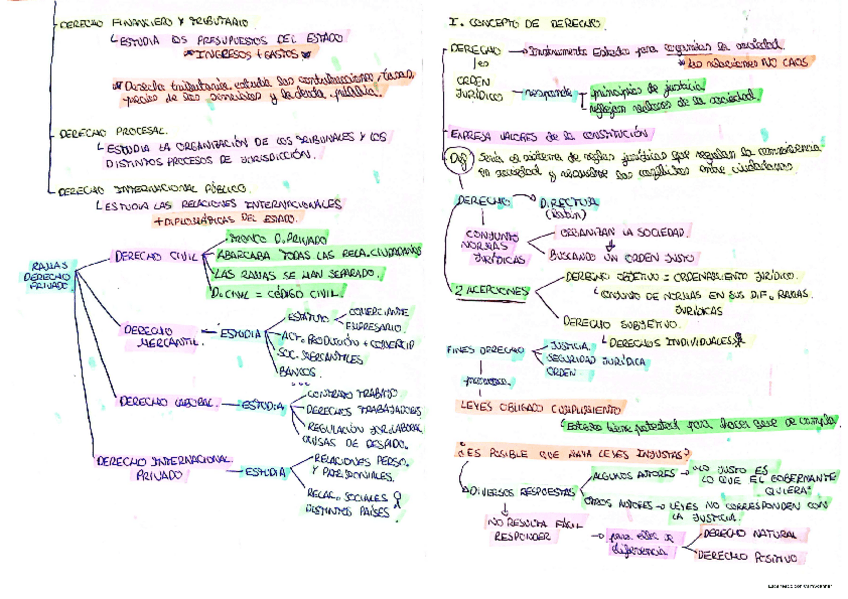 DERECHO FINANCIERO Y TRIBUTARIO
ESTUDIA LOS PRESUPUESTOS DEL ESTADO
*INGRESOS + GASTOS*
* Derecho tributario estudia las contribuciones, tasas,
precios de los servicios y la deuda pública.
DERECHO PROCESAL.
ESTUDIA LA ORGANIZACIÓN DE LOS TRIBUNALES Y LOS
DISTINTOS PROCESOS DE JURISDICCIÓN.
DERECHO INTERNACIONAL PÚBLICO.
ESTUDIA LAS RELACIONES INTERNACIONALES
+ DIPLOMÁTICAS DEL ESTADO.
RAMAS
DERECHO
PRIVADO.
DERECHO CIVIL
TRONCO D. PRIVADO
ABARCABA TODAS LAS RELA. CIUDADANOS
LAS RAMAS SE HAN SEPARADO.
D. CIVIL = CÓDIGO CIVIL.
DERECHO
MERCANTIL.
ESTUDIA
ESTATUTO
COMERCIANTE
EMPRESARIO.
ACT. PRODUCCIÓN + COMERCIO
SOC. MERCANTILES
BANCOS.
...
DERECHO LABORAL.
ESTUDIA
CONTRATO TRABAJO
DERECHOS TRABAJADORES
REGULACIÓN JOR. LABORAL
CAUSAS DE DESPIDO.
DERECHO INTERNACIONAL
PRIVADO
ESTUDIA
RELACIONES PERSO.
Y PATRIMONIALES.
RELAC. SOCIALES
DISTINTOS PAÍSES
I. CONCEPTO DE DERECHO.
DERECHO → Instrumento Estado para organizar la sociedad.
NO CAOS
es
ORDEN
JURÍDICO → responde
principios de justicia
reflejan valores de la sociedad.
EXPRESA VALORES de la CONSTITUCIÓN
Def
Sería el sistema de reglas jurídicas que regulan la convivencia
en sociedad y resuelve los conflictos entre ciudadanos.
DERECHO → DIRECTUM
CONJUNTO
NORMAS
JURÍDICAS
ORGANIZAN LA SOCIEDAD.
BUSCANDO UN ORDEN JUSTO
2 ACEPCIONES
DERECHO OBJETIVO = ORDENAMIENTO JURÍDICO.
CONJUNTO DE NORMAS EN SUS DIF. RAMAS
JURÍDICAS
DERECHO SUBJETIVO.
DERECHOS INDIVIDUALES
FINES DERECHO
JUSTICIA.
SEGURIDAD JURÍDICA
ORDEN
LEYES OBLIGADO CUMPLIMIENTO
Estado tiene potestad para hacer que se cumpla.
¿ES POSIBLE QUE HAYA LEYES INJUSTAS?
DIVERSOS RESPUESTAS
ALGUNOS AUTORES → "LO JUSTO ES
LO QUE EL GOBERNANTE
QUIERA"
OTROS AUTORES → LEYES NO CORRESPONDEN CON
LA JUSTICIA.
NO RESULTA FÁCIL
RESPONDER
→ para ello se
diferencia
DERECHO NATURAL
DERECHO POSITIVO